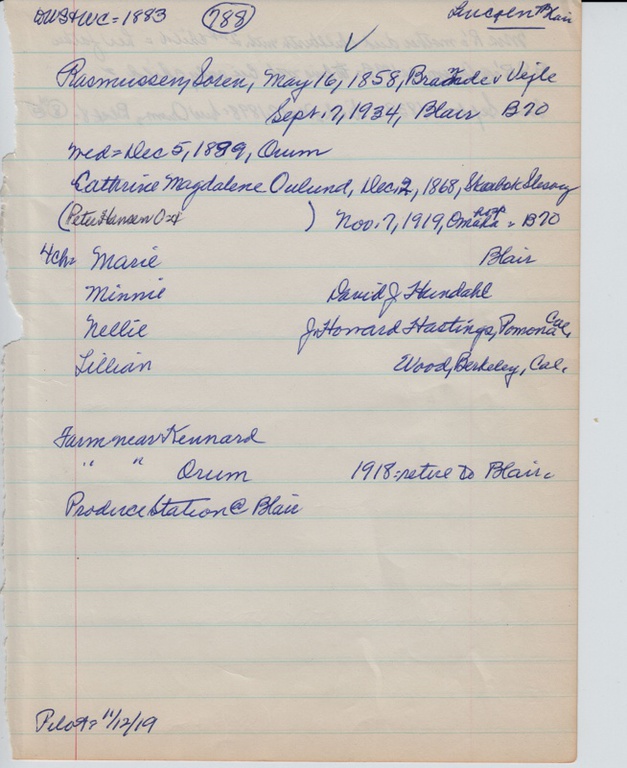 DWS+WC=1883 788 Lincoln Blair
Rasmussen, Soren, May 16, 1858, v Vejle
Sept. 7, 1934, Blair B70
med=Dec 5, 1889, Orum
Cathrine Magdalene Oulund, Dec. 2, 1868,
(Peter Hansen O=4 ) Nov. 7, 1919, Omaha hosp = B70
4ch= Marie Blair
Minnie David J Hundahl
Nellie J. Howard Hastings, Pomona Cal.
Lillian Wood, Berkeley, Cal.
Farm near Kennard
" " Orum 1918=retire to Blair.
Produce Station @ Blair
Pilot= 11/12/19